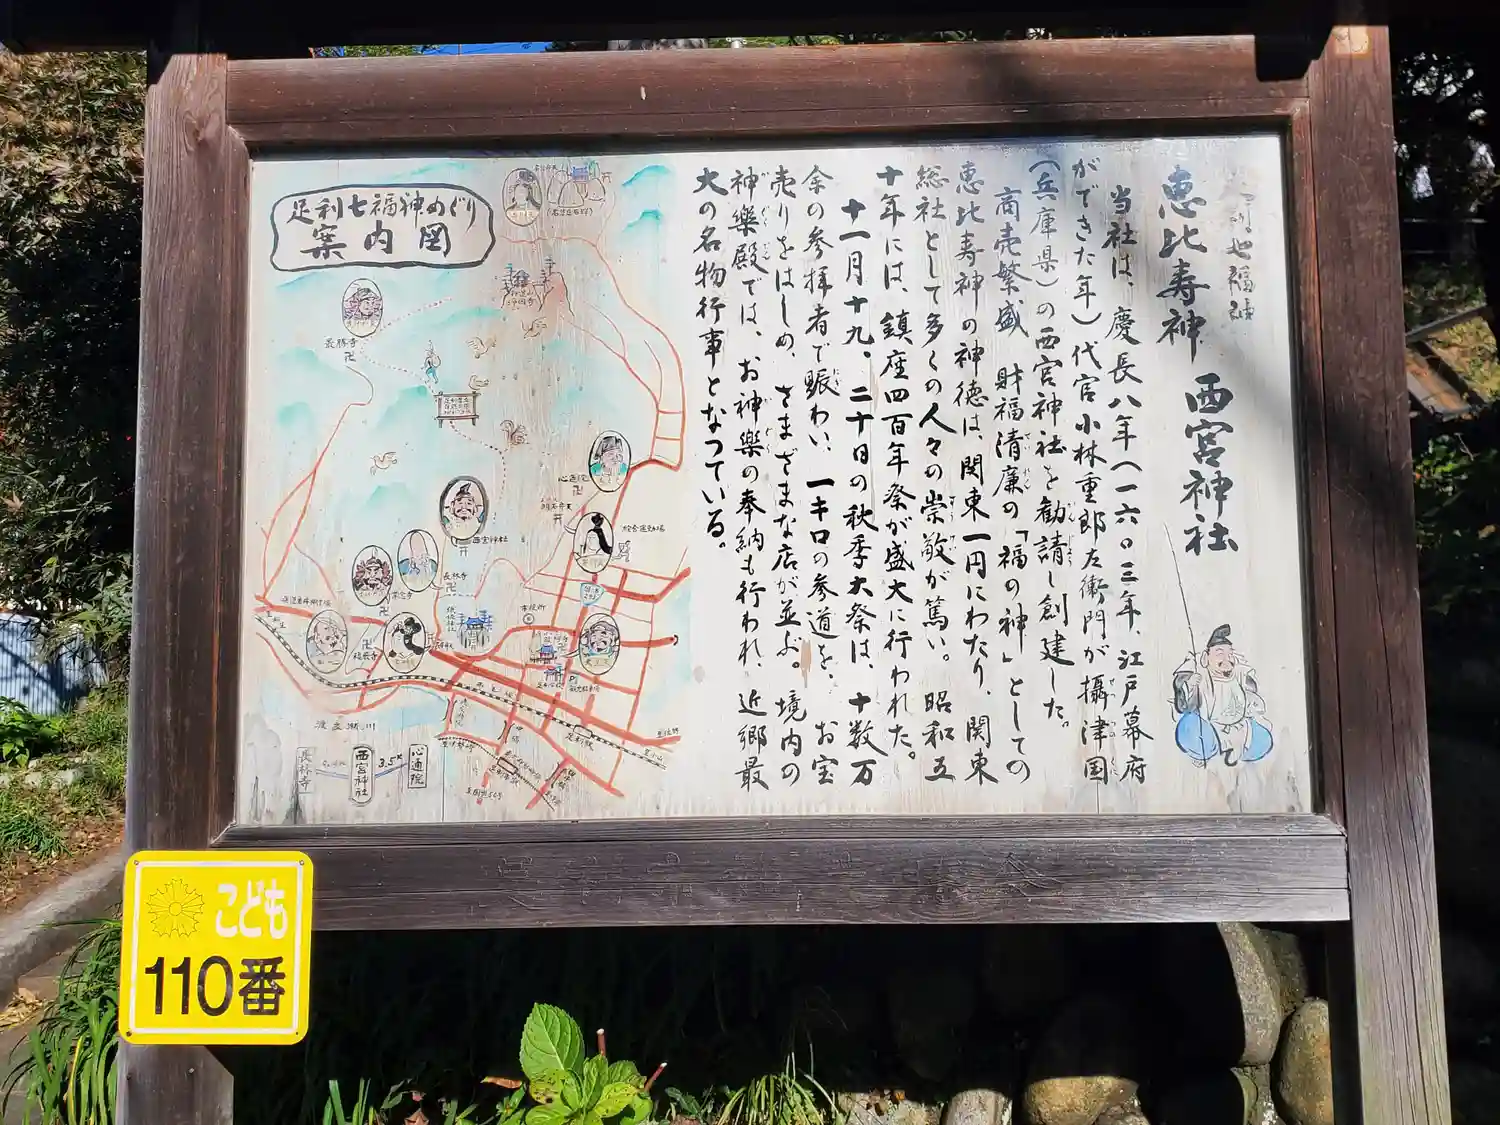 足利七福神
恵比寿神 西宮神社
当社は、慶長八年(一六〇三年、江戸幕府
ができた年)代官小林重郎左衛門が攝津国
(兵庫県)の西宮神社を勧請し創建した。
商売繁盛 財福清廉の「福の神」としての
恵比寿神の神徳は、関東一円にわたり、関東
総社として多くの人々の崇敬が篤い。昭和五
十年には、鎮座四百年祭が盛大に行われた。
十一月十九、二十日の秋季大祭は、十数万
余の参拝者で賑わい、一キロの参道を、お宝
売りをはじめ、さまざまな店が並ぶ。境内の
神楽殿では、お神楽の奉納も行われ、近郷最
大の名物行事となっている。
足利七福神めぐり
案内図
最勝寺
心通院
西宮神社
長林寺
常念寺
福厳寺
市役所
渡良瀬川
足利駅
長林寺
西宮神社
3.5K
心通院
こども
110番